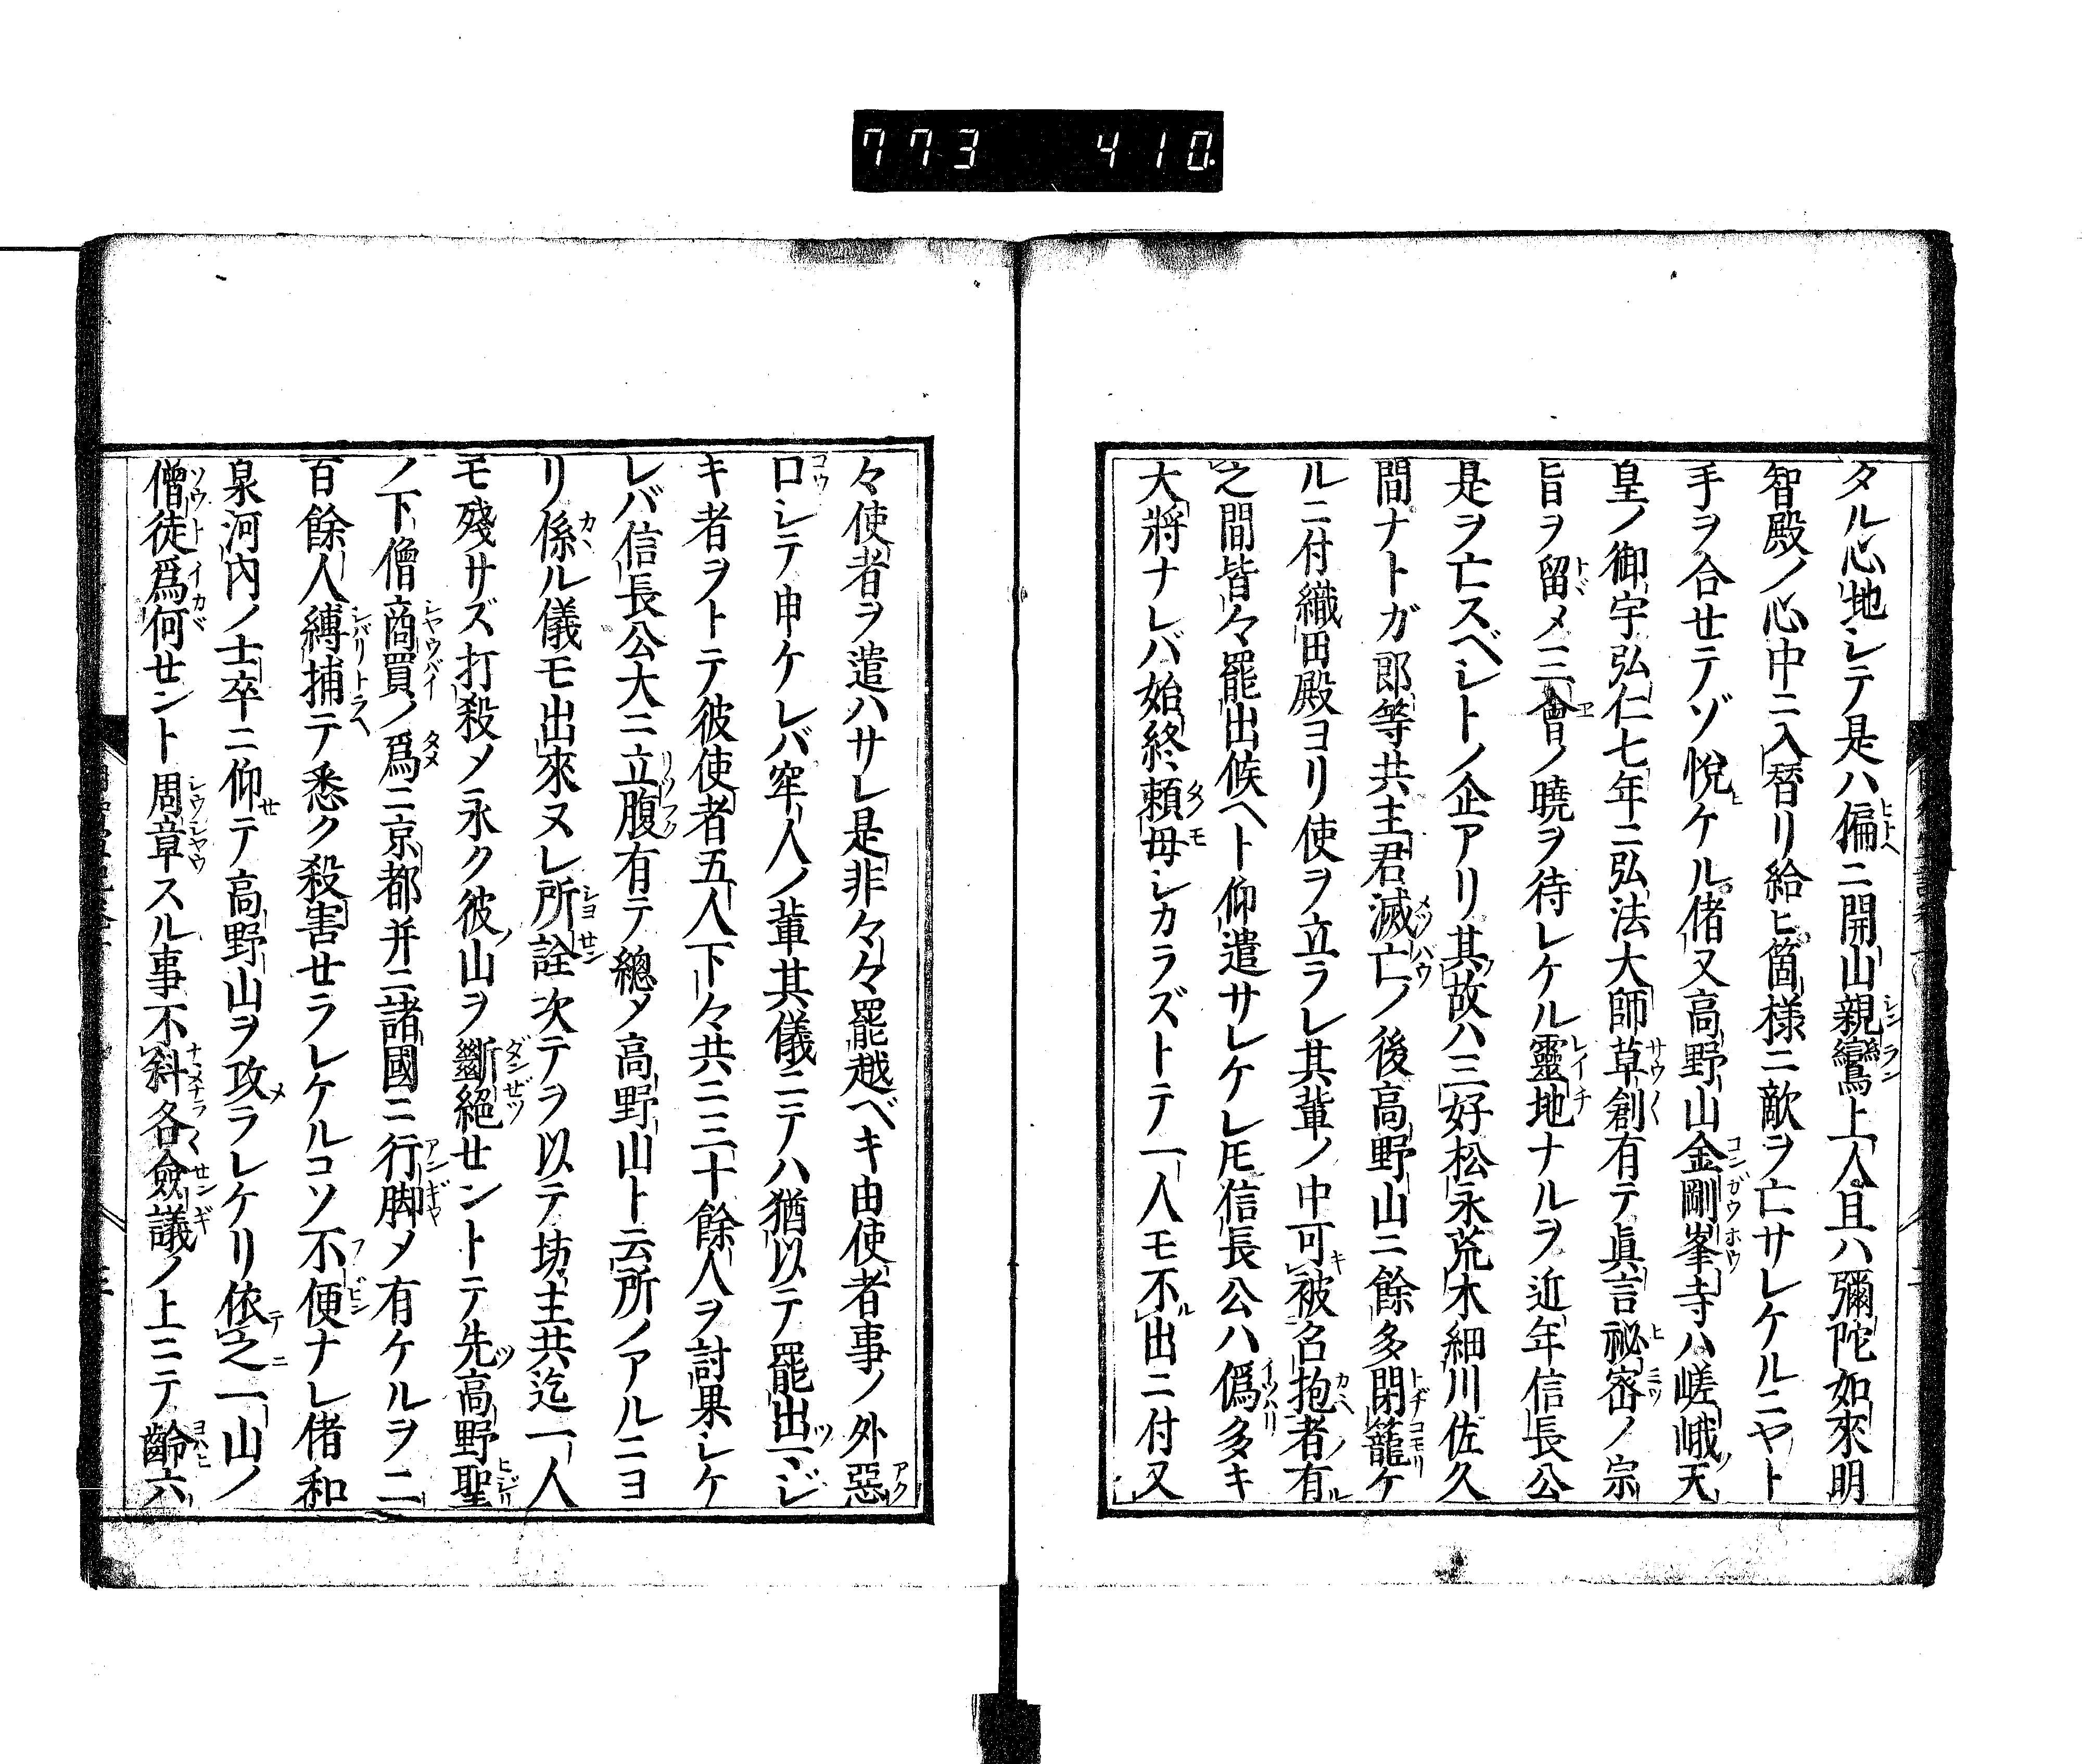 773 410
タル心地シテ是ハ偏ニ開山親鸞上人且ハ彌陀如來明
智殿ノ心中ニ入替リ給ヒ箇様ニ敵ヲ亡サレケルニヤト
手ヲ合セテゾ悅ケル偖又高野山金剛峯寺ハ嵯峨天
皇ノ御宇弘仁七年ニ弘法大師草創有テ眞言祕密ノ宗
旨ヲ留メ三會ノ曉ヲ待レケル靈地ナルヲ近年信長公
是ヲ亡スベシトノ企アリ其故ハ三好松永荒木細川佐久
間ナトガ郎等共主君滅亡ノ後高野山ニ餘多閉籠ケ
ルニ付織田殿ヨリ使ヲ立ラレ其輩ノ中可被召抱者有
之間皆々罷出候ヘト仰遣サレケレ𪜈信長公ハ僞多キ
大將ナレバ始終頼母シカラズトテ一人モ不出ニ付又
々使者ヲ遣ハサレ是非々々罷越ベキ由使者事ノ外惡
口シテ申ケレバ窂人ノ輩其儀ニテハ猶以テ罷出マジ
キ者ヲトテ彼使者五人下々共ニ三十餘人ヲ討果シケ
レバ信長公大ニ立腹有テ總〆高野山ト云所ノアルニヨ
リ係ル儀モ出來ヌレ所詮次テヲ以テ坊主共迄一人
モ殘サズ打殺〆永ク彼山ヲ斷絕セントテ先高野聖
ノ下僧商買ノ爲ニ京都并ニ諸國ニ行脚〆有ケルヲ二
百餘人縛捕テ悉ク殺害セラレケルコソ不便ナレ偖和
泉河內ノ士卒ニ仰テ高野山ヲ攻ラレケリ依之一山ノ
僧徒爲何セント周章スル事不斜各僉議ノ上ニテ齡六